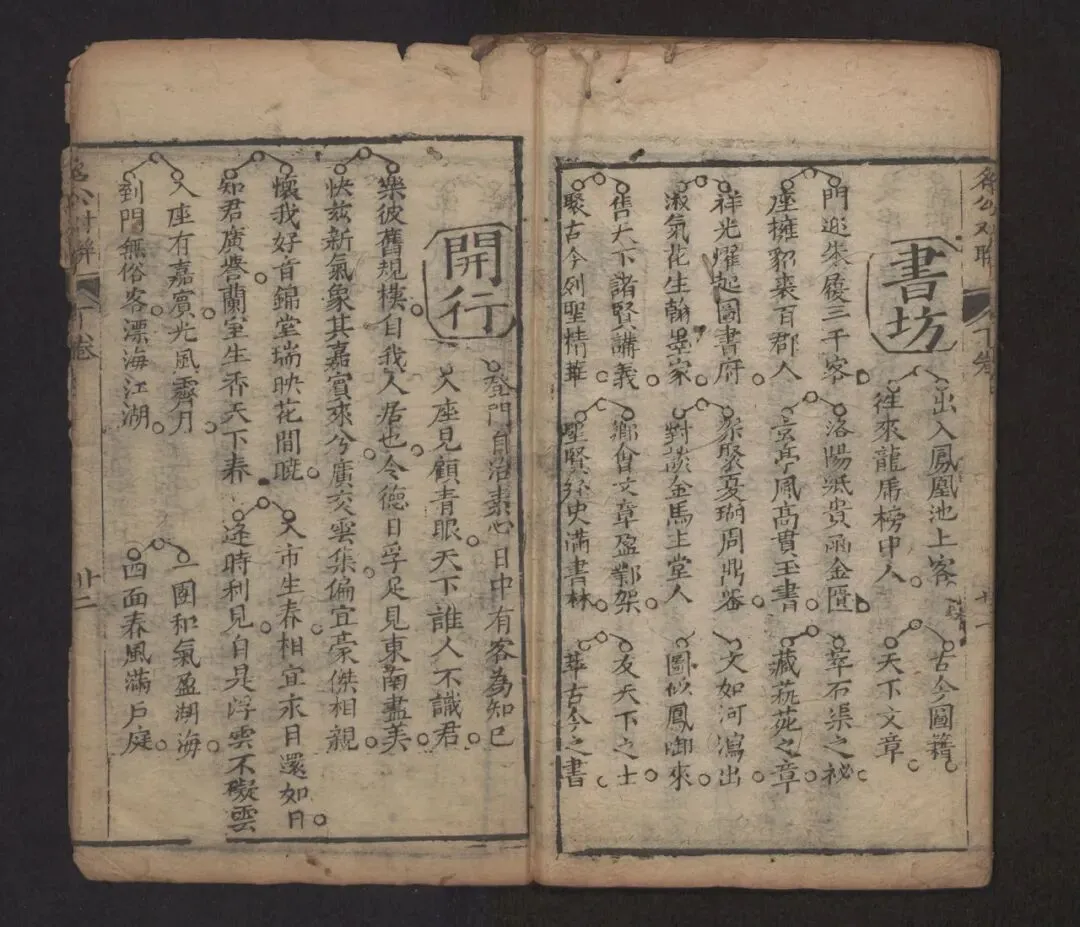 書坊
出入鳳凰池上客
往來龍虎榜中人
古今圖籍
天下文章
門迎朱履三千客
座擁貂裘百郡人
洛陽紙貴函金匱
玄亭風高貫玉書
萃石渠之祕
藏萟苑之章
祥光耀起圖書府
淑氣花生翰墨家
聚夏瑚周鼎器
對談金馬玉堂人
文如河瀉出
圖似鳳啣來
售天下諸賢講義
聚古今列聖精華
鄉會文章盈鄴架
聖賢經史滿書林
友天下之士
萃古今之書
下卷
十一
開行
登門自洽素心日中有客為知己
入座見顧青眼天下誰人不識君
樂彼舊規模自我人居也令德日孚足見東南盡美
快兹新氣象其嘉賓來兮廣交雲集偏宜豪傑相親
懷我好音錦堂瑞映花間暖
知君廣譽蘭室生香天下春
入市生春相宜永日還如日
逢時利見自是浮雲不礙雲
入座有嘉賓光風霽月
到門無俗客漂海江湖
一團和氣盈湖海
四面春風滿戶庭
下卷
廿二